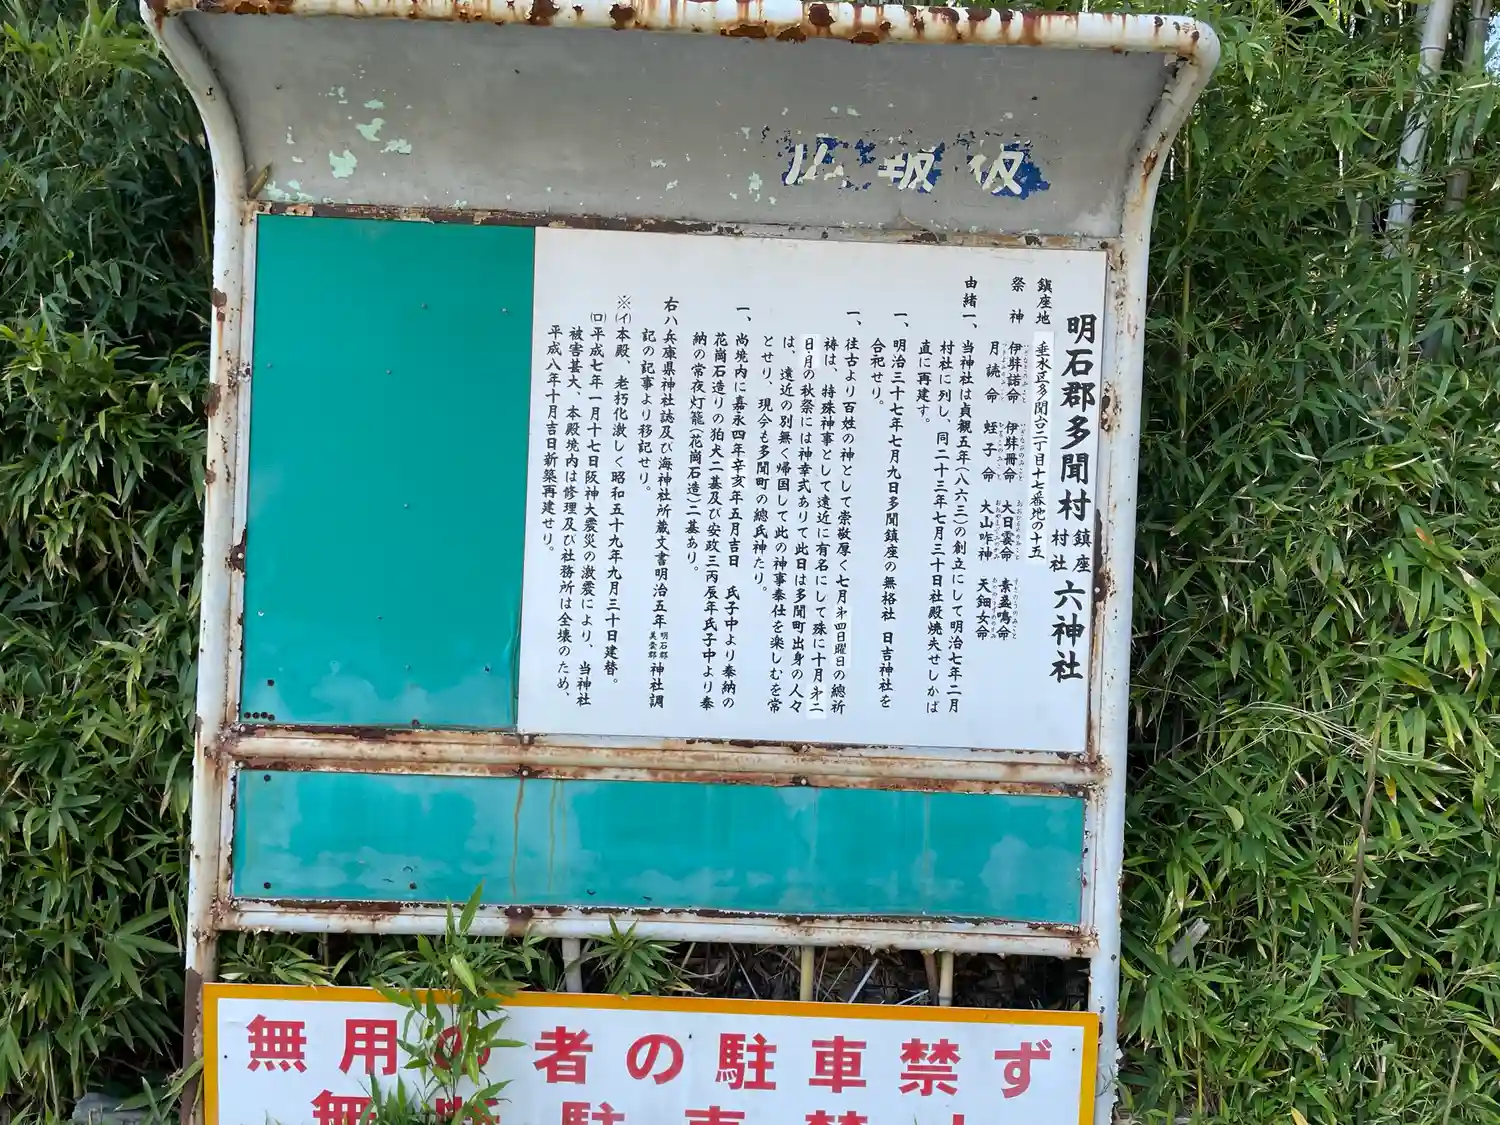 広報板
明石郡多聞村 鎮座 村社 六神社
鎮座地 垂水区多聞台二丁目十七番地の十五
祭神 伊弉諾命 伊弉冊命 大日孁命 素盞嗚命
月読命 蛭子命 大山咋神 天鈿女命
由緒一、当神社は貞観五年(八六三)の創立にして明治七年二月
村社に列し、同二十三年七月三十日社殿焼失せしかば
直に再建す。
一、明治三十七年七月九日多聞鎮座の無格社 日吉神社を
合祀せり。
一、往古より百姓の神として崇敬厚く七月才四日曜日の總祈
祷は、特殊神事として遠近に有名にして殊に十月才二
日・月の秋祭には神幸式ありて此日は多聞町出身の人々
は、遠近の別無く帰国して此の神事奉仕を楽しむを常
とせり、現今も多聞町の總氏神たり。
一、尚境内に嘉永四年辛亥年五月吉日 氏子中より奉納の
花崗石造りの狛犬二基及び安政三丙辰年氏子中より奉
納の常夜灯籠(花崗石造)二基あり。
右ハ兵庫県神社誌及び海神社所蔵文書明治五年 明石郡 美嚢郡 神社調
記の記事より移記せり。
※(イ)本殿、老朽化激しく昭和五十九年九月三十日建替。
(ロ)平成七年一月十七日阪神大震災の激震により、当神社
被害甚大、本殿境内は修理及び社務所は全壊のため、
平成八年十月吉日新築再建せり。
無用の者の駐車禁ず
無断駐車禁止